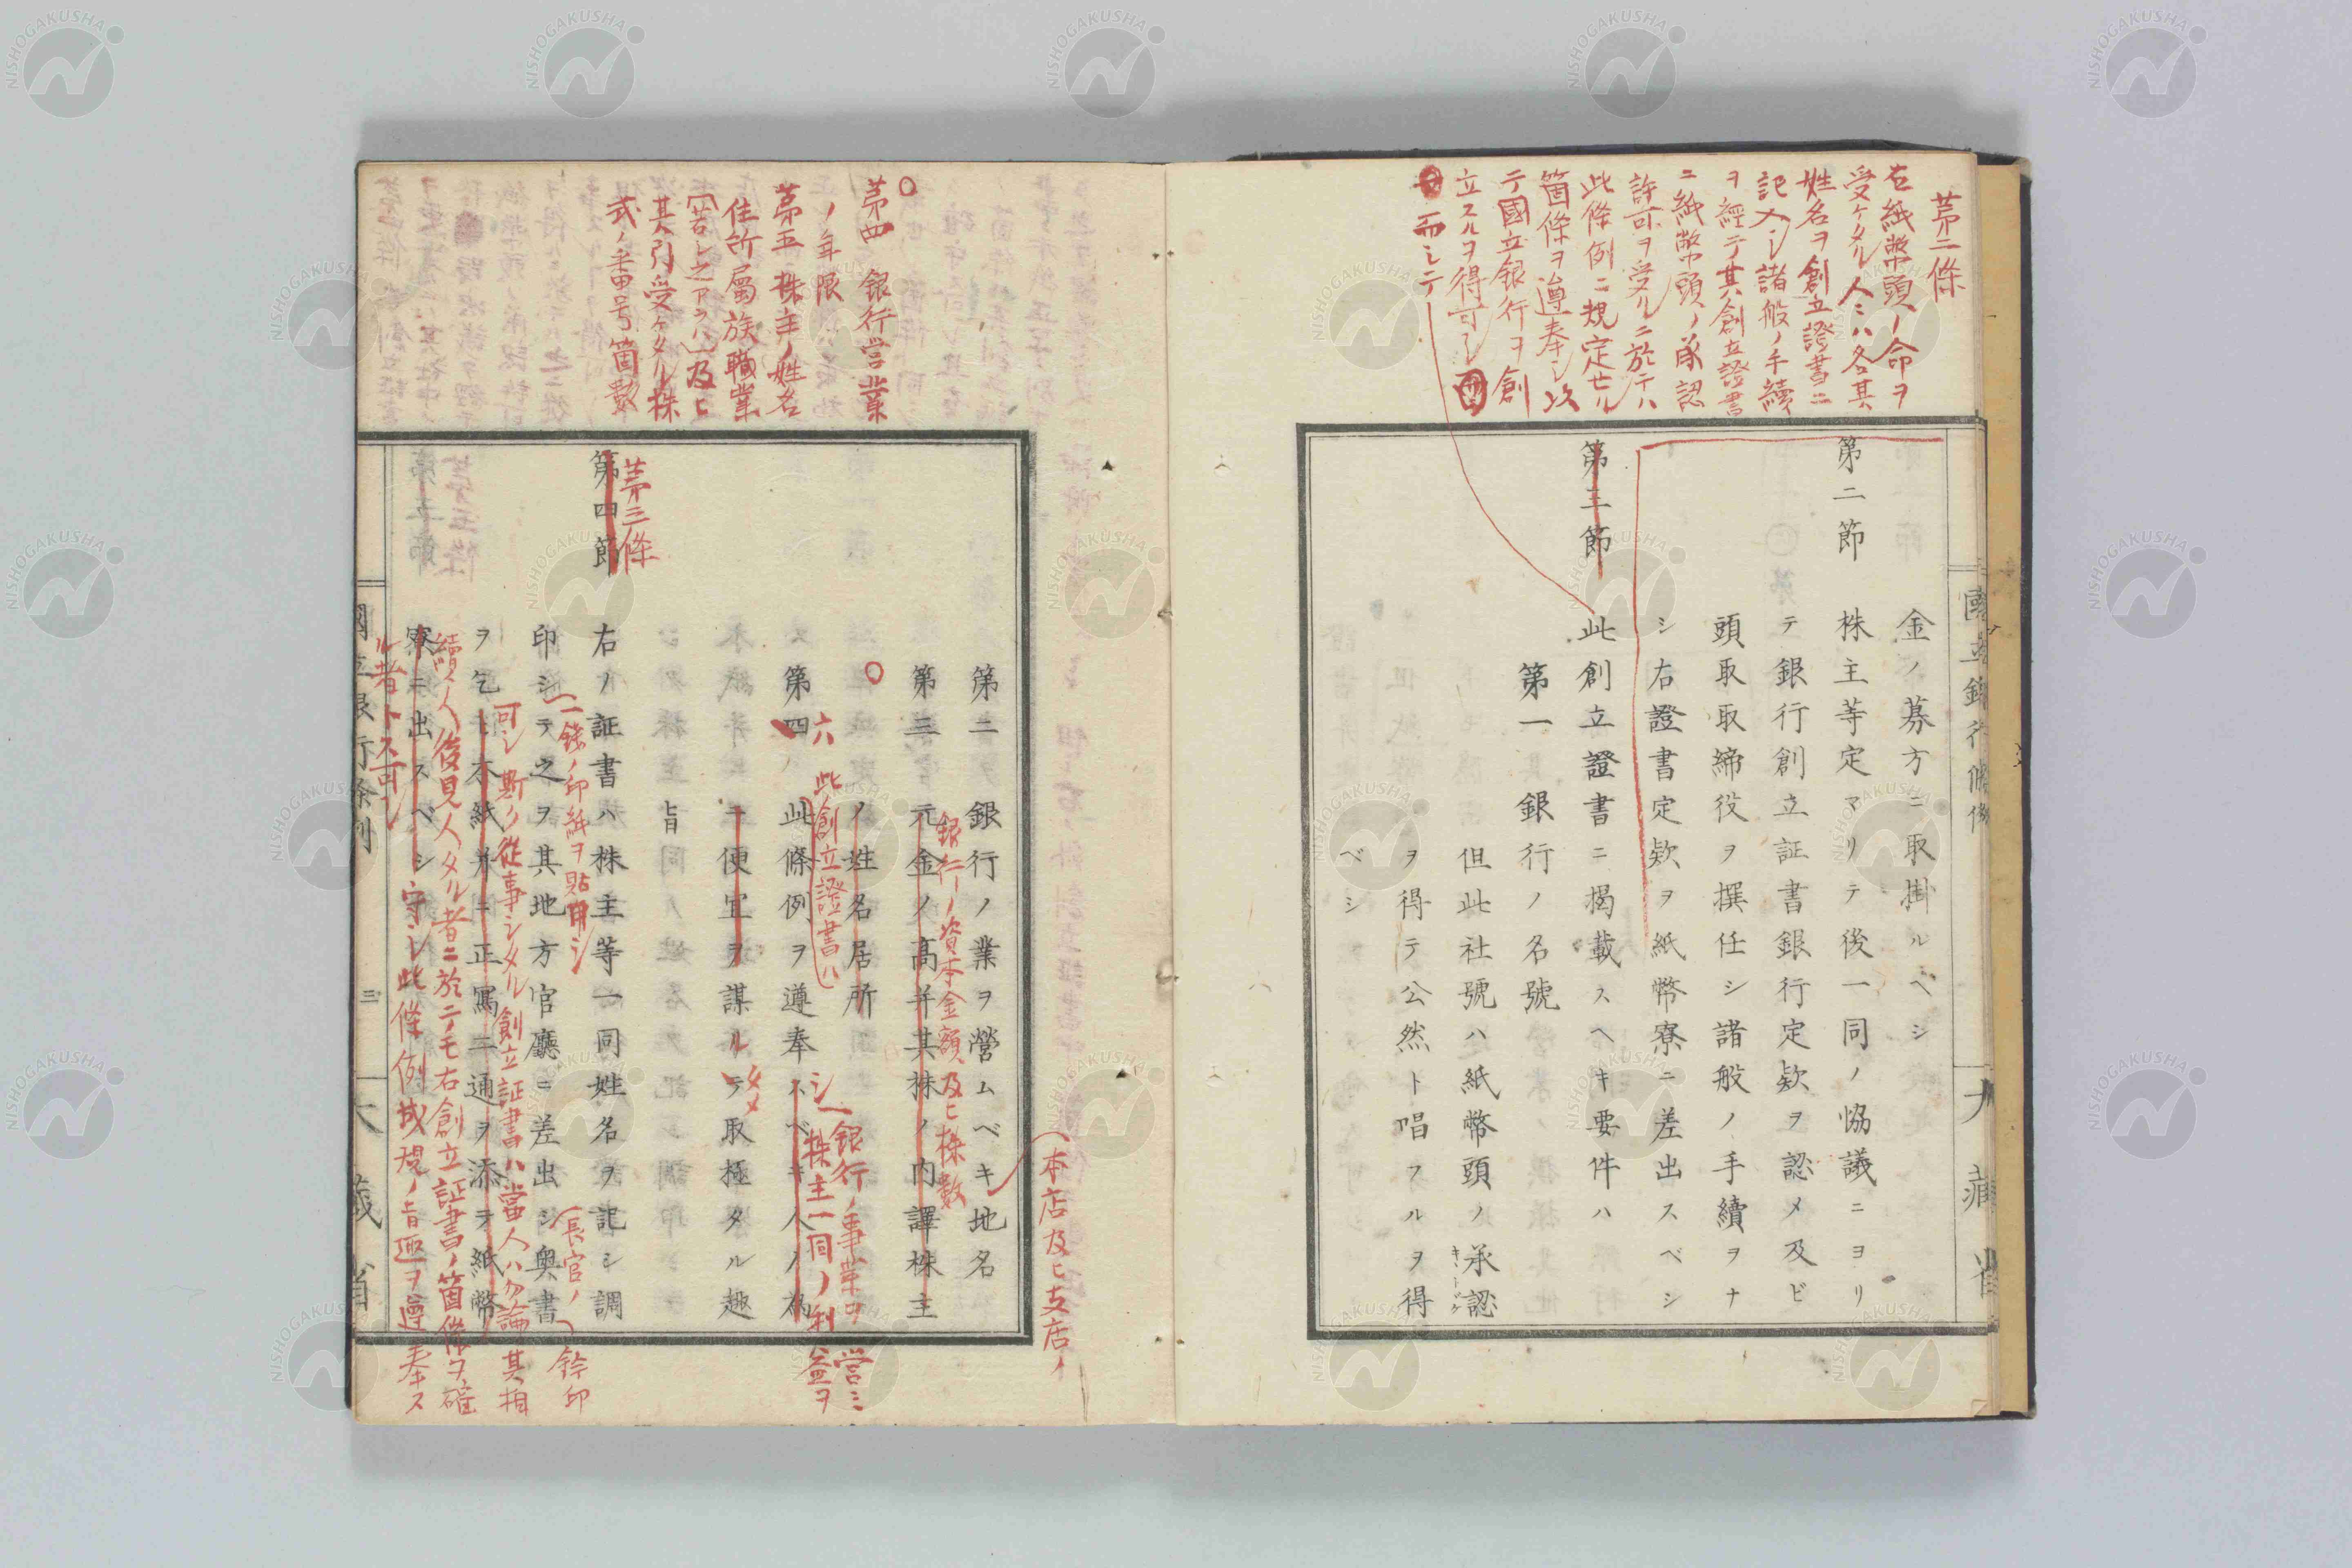 第二條
右紙幣頭ノ命ヲ
受ケタル人々ハ各其
姓名ヲ創立證書ニ
記入シ諸般ノ手續
ヲ經テ其創立證書
ニ紙幣頭ノ承認
許可ヲ受ルニ於テハ
此條例ニ規定セル
箇條ヲ遵奉シ以
テ國立銀行ヲ創
立スルヲ得可シ
而シテ
金ノ募方ニ取掛ルベシ
第二節 株主等定マリテ後一同ノ恊議ニヨリ
テ銀行創立証書銀行定欵ヲ認メ及ビ
頭取取締役ヲ撰任シ諸般ノ手續ヲナ
シ右證書定欵ヲ紙幣寮ニ差出スベシ
第三節 此創立證書ニ揭載スヘキ要件ハ
第一 銀行ノ名號
但此社號ハ紙幣頭ノ承認
ヲ得テ公然ト唱フルヲ得
ベシ
○
第四 銀行営業
ノ年限
第五 株主ノ姓名
住所屬族職業
(若シ之アラハ)及ヒ
其引受ケタル株
式ノ番号箇數
(本店及ヒ支店ノ
第二 銀行ノ業ヲ營ムベキ地名
銀行ノ資本金額及ヒ株數
第三 元金ノ高并其株ノ內譯株主
○
ノ姓名居所
六 此創立證書ハ
銀行ノ事業ヲ営ミ
株主一同ノ利益ヲ
第四 此條例ヲ遵奉スベキ人ノ為
シ
ニ便宜ヲ謀ルテ取極タル趣
タメ
旨
第三條
第四節 右ノ証書ハ株主等一同姓名ヲ記シ調
(一錢ノ印紙ヲ貼用シ
(長官ノ)鈐印
印シテ之ヲ其地方官廳ニ差出シ奥書
可シ斯ク從事シタル創立証書ハ當人ハ勿論其相
ヲ乞ヒ本紙并ニ正寫二通ヲ添ヲ紙幣
續人後見人タル者ニ於テモ右創立証書ノ箇條ヲ確
寮ニ出スベシ
守シ此條例成規ノ旨趣ヲ遵奉ス
ル者トス可シ
三